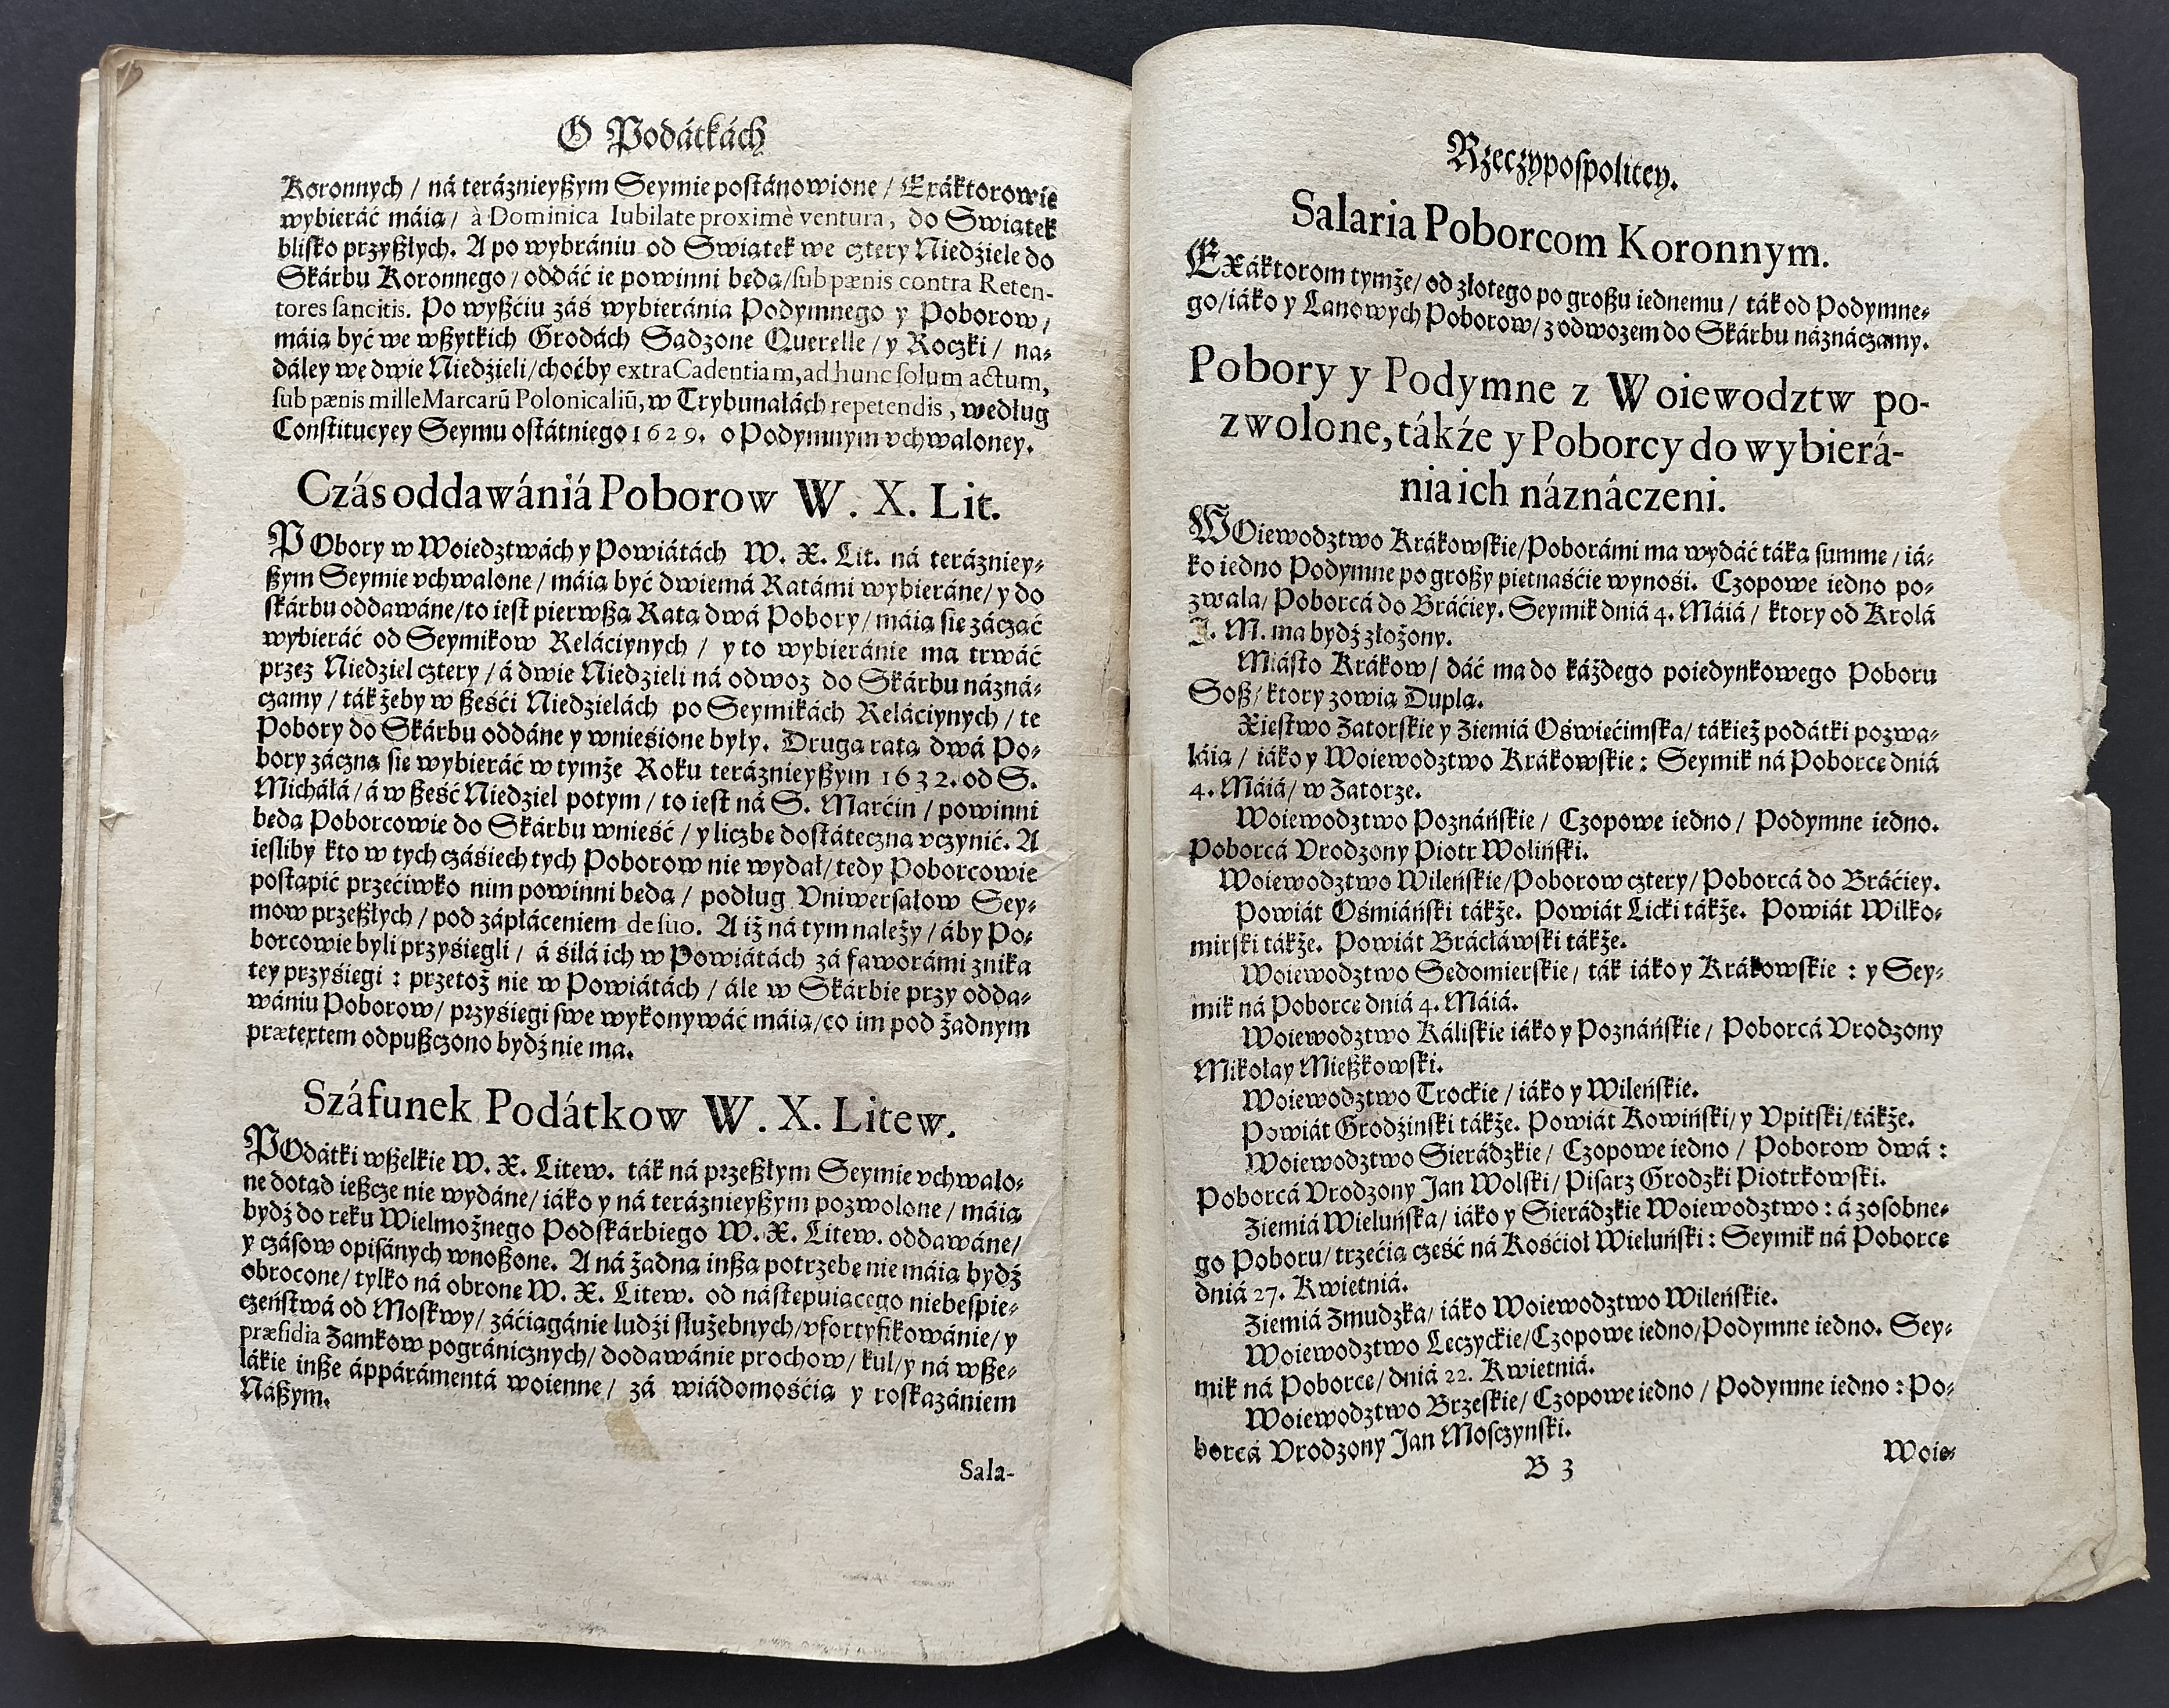 O Podátkách
Koronnych / ná teráznieyßym Seymie postánowione / Exáktorowie
wybieráć máią / à Dominica Iubilate proximè ventura, do Swiątek
blisko przyßłych. A po wybrániu od Swiątek we cztery Niedźiele do
Skárbu Koronnego / oddáć ie powinni będą / sub pænis contra Reten-
tores sancitis. Po wyßćiu záś wybieránia Podymnego y Poborow /
máią być we wßytkich Grodách Sądzone Querelle / y Roczki / na-
dáley we dwie Niedźieli / choćby extra Cadentiam, ad hunc solum actum,
sub pænis mille Marcarũ Polonicaliũ, w Trybunałách repetendis, według
Constitucyey Seymu ostátniego 1629. o Podymnym vchwaloney.
Czás oddawániá Poborow W. X. Lit.
PObory w Woiedztwách y Powiátách W. X. Lit. ná terázniey-
ßym Seymie vchwalone / máią być dwiemá Ratámi wybieráne / y do
skárbu oddawáne / to iest pierwßa Rata dwá Pobory / máią się zácząć
wybieráć od Seymikow Reláciynych / y to wybieránie ma trwáć
przez Niedźiel cztery / á dwie Niedźieli ná odwoz do Skárbu názná-
czamy / ták żeby w ßeśći Niedźielách po Seymikách Reláciynych / te
Pobory do Skárbu oddáne y wnieśione były. Druga rata dwá Po-
bory záczną się wybieráć w tymże Roku teráznieyßym 1632. od S.
Micháłá / á w ßeść Niedźiel potym / to iest ná S. Marćin / powinni
będą Poborcowie do Skárbu wnieść / y liczbę dostáteczną vczynić. A
iesliby kto w tych czásiech tych Poborow nie wydał / tedy Poborcowie
postąpić przećiwko nim powinni będą / podług Vniwersałow Sey-
mow przeßłych / pod zápłáceniem de suo. A iż ná tym należy / áby Po-
borcowie byli przyśięgli / á śiłá ich w Powiátách zá faworámi znika
tey przyśięgi : przetoż nie w Powiátách / ále w Skárbie przy odda-
wániu Poborow / przyśięgi swe wykonywáć máią / co im pod żadnym
prætextem odpußczono bydź nie ma.
Száfunek Podátkow W. X. Litew.
POdátki wßelkie W. X. Litew. ták ná przeßłym Seymie vchwalo-
ne dotąd ießcze nie wydáne / iáko y ná teráznieyßym pozwolone / máią
bydź do ręku Wielmożnego Podskárbiego W. X. Litew. oddawáne /
y czásow opisánych wnoßone. A ná żadną inßą potrzebę nie máią bydź
obrocone / tylko ná obronę W. X. Litew. od nástępuiącego niebespie-
czeństwá od Moskwy / záćiągánie ludźi służebnych / vfortyfikowánie / y
præsidia Zamkow pogránicznych / dodawánie prochow / kul / y ná wße-
lákie inße áppárámentá woienne / zá wiádomośćią y roskazániem
Náßym.
Sala-
Rzeczypospolitey.
Salaria Poborcom Koronnym.
EXáktorom tymże / od złotego po großu iednemu / ták od Podymne-
go / iáko y Łanowych Poborow / z odwozem do Skárbu náznáczamy.
Pobory y Podymne z Woiewodztw po-
zwolone, tákże y Poborcy do wybierá-
nia ich náznáczeni.
WOiewodztwo Krákowskie / Poborámi ma wydáć táką summę / iá-
ko iedno Podymne po großy piętnaśćie wynośi. Czopowe iedno po-
zwala / Poborcá do Bráćiey. Seymik dniá 4. Máiá / ktory od Krolá
J. M. ma bydź złożony.
Miásto Krákow / dáć ma do káżdego poiedynkowego Poboru
Soß / ktory zowią Dupla.
Xięstwo Zatorskie y Ziemiá Oświećimska / tákież podátki pozwa-
láią / iáko y Woiewodztwo Krákowskie : Seymik ná Poborcę dniá
4. Máiá / w Zatorze.
Woiewodztwo Poznáńskie / Czopowe iedno / Podymne iedno.
Poborcá Vrodzony Piotr Woliński.
Woiewodztwo Wileńskie / Poborow cztery / Poborcá do Bráćiey.
Powiát Ośmiáński tákże. Powiát Lidzki tákże. Powiát Wilko-
mirski tákże. Powiát Brácłáwski tákże.
Woiewodztwo Sędomierskie / ták iáko y Krákowskie : y Sey-
mik ná Poborcę dniá 4. Máiá.
Woiewodztwo Káliskie iáko y Poznáńskie / Poborcá Vrodzony
Mikołay Mießkowski.
Woiewodztwo Trockie / iáko y Wileńskie.
Powiát Grodźinski tákże. Powiát Kowiński / y Vpitski / tákże.
Woiewodztwo Sierádzkie / Czopowe iedno / Poborow dwá :
Poborcá Vrodzony Jan Wolski / Pisarz Grodzki Piotrkowski.
Ziemiá Wieluńska / iáko y Sierádzkie Woiewodztwo : á z osobne-
go Poboru / trzećia część ná Kośćioł Wieluński : Seymik ná Poborcę
dniá 27. Kwietniá.
Ziemiá Zmudzka / iáko Woiewodztwo Wileńskie.
Woiewodztwo Łęczyckie / Czopowe iedno / Podymne iedno. Sey-
mik ná Poborcę / dniá 22. Kwietniá.
Woiewodztwo Brzeskie / Czopowe iedno / Podymne iedno : Po-
borcá Vrodzony Jan Mosczynski.
B 3
Woie-